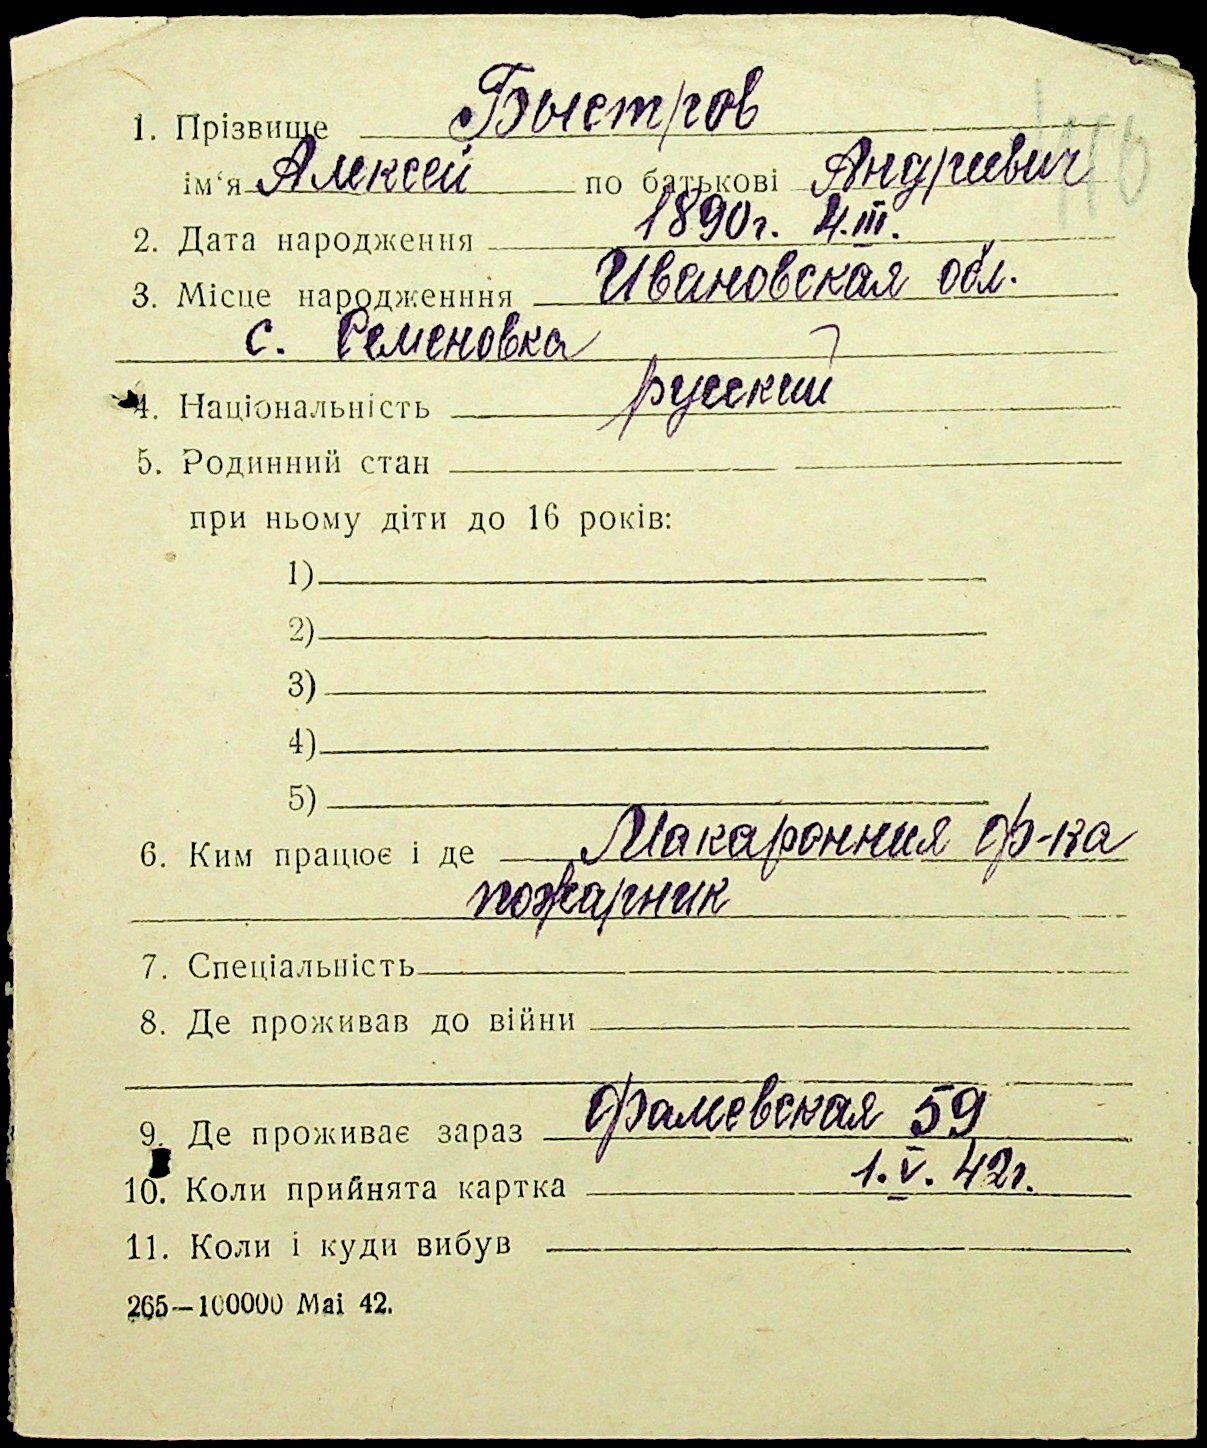 1. Прізвище Быстров
ім‘я Алексей по батькові Андреевич
2. Дата народження 1890г. 4.III.
3. Місце народженння Ивановская обл.
с. Семеновка
4. Національність русский
5. Родинний стан
при ньому діти до 16 років:
1)
2)
3)
4)
5)
6. Ким працює і де Макаронная ф-ка
пожарник
7. Спеціальність
8. Де проживав до війни
9. Де проживає зараз 59
10. Коли прийнята картка 1.V.42г.
11. Коли і куди вибув
265—100000 Mai 42.